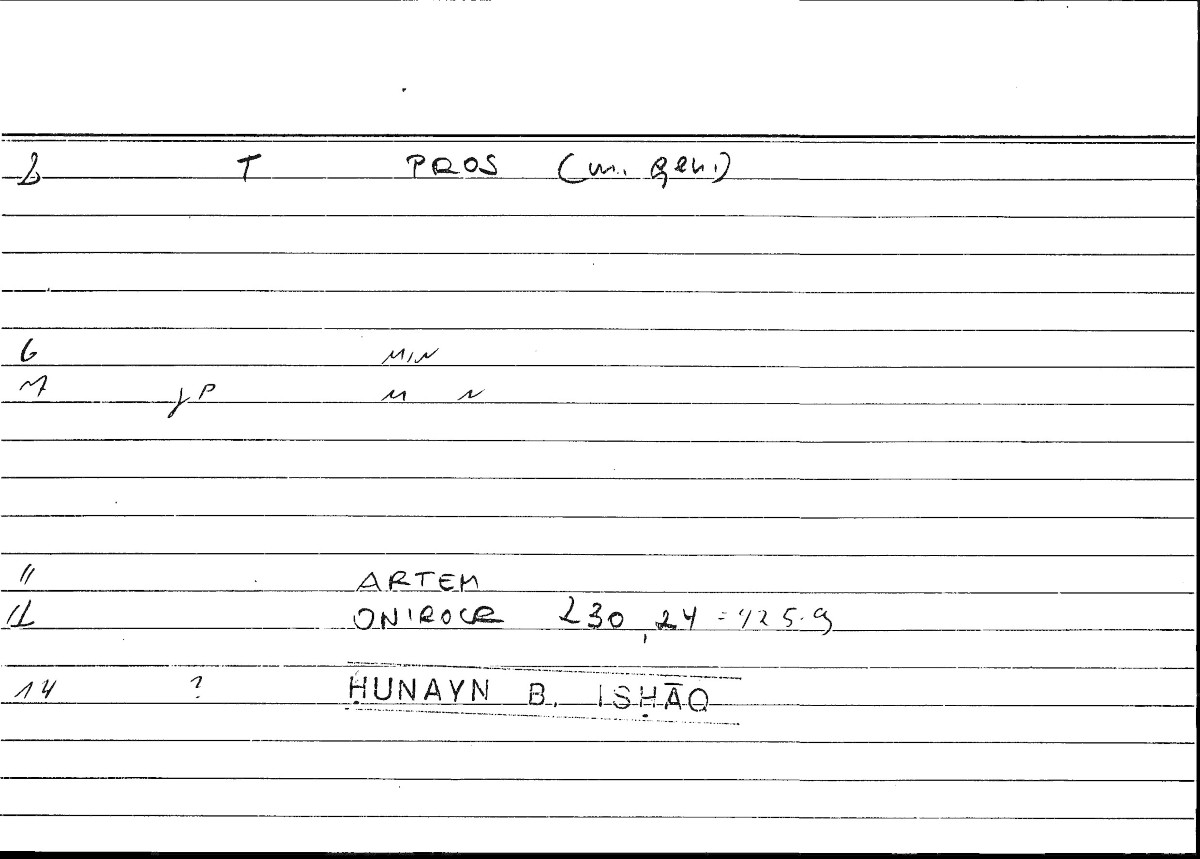 2 T PROS (m. gen.)
6 MIN
7 jP M N
11 ARTEM
12 ONIROCR 230,24 = 425.9
14 ? ḤUNAYN B. ISḤĀQ